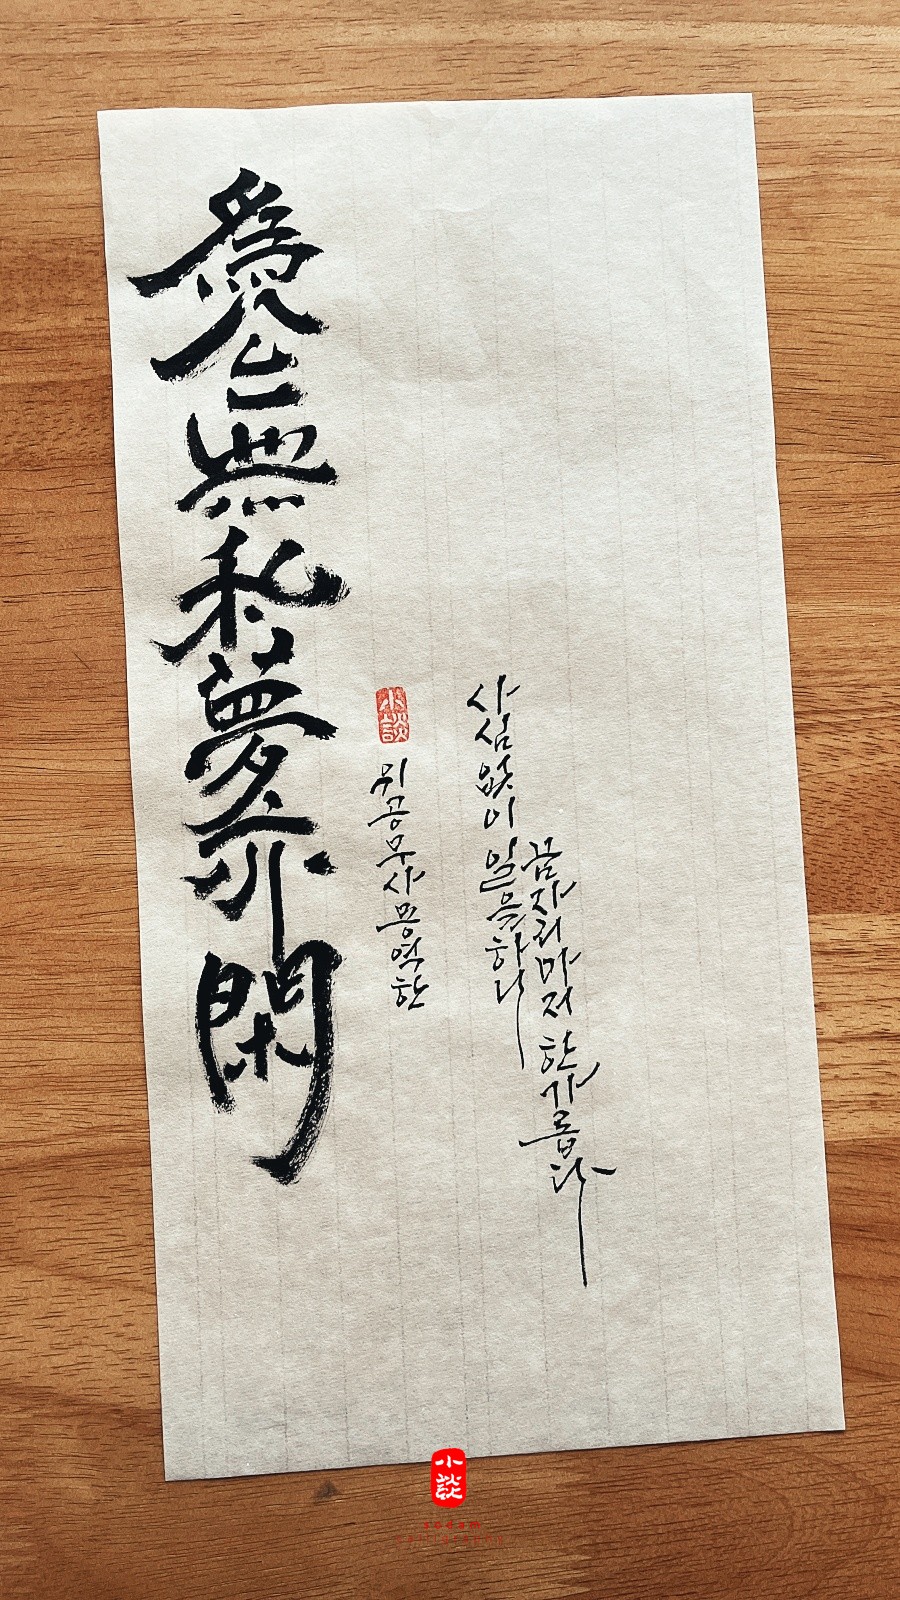 爲公無私夢亦閑
小談
위공무사몽역한
사심없이 일을하니
꿈자리마저 한가롭다
小談
sodam